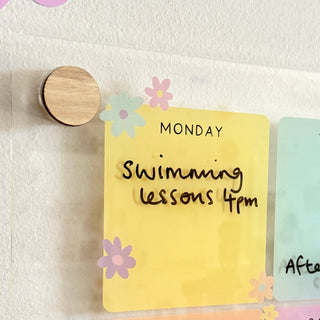 MONDAY
Swimming
lessons 4pm
Afte